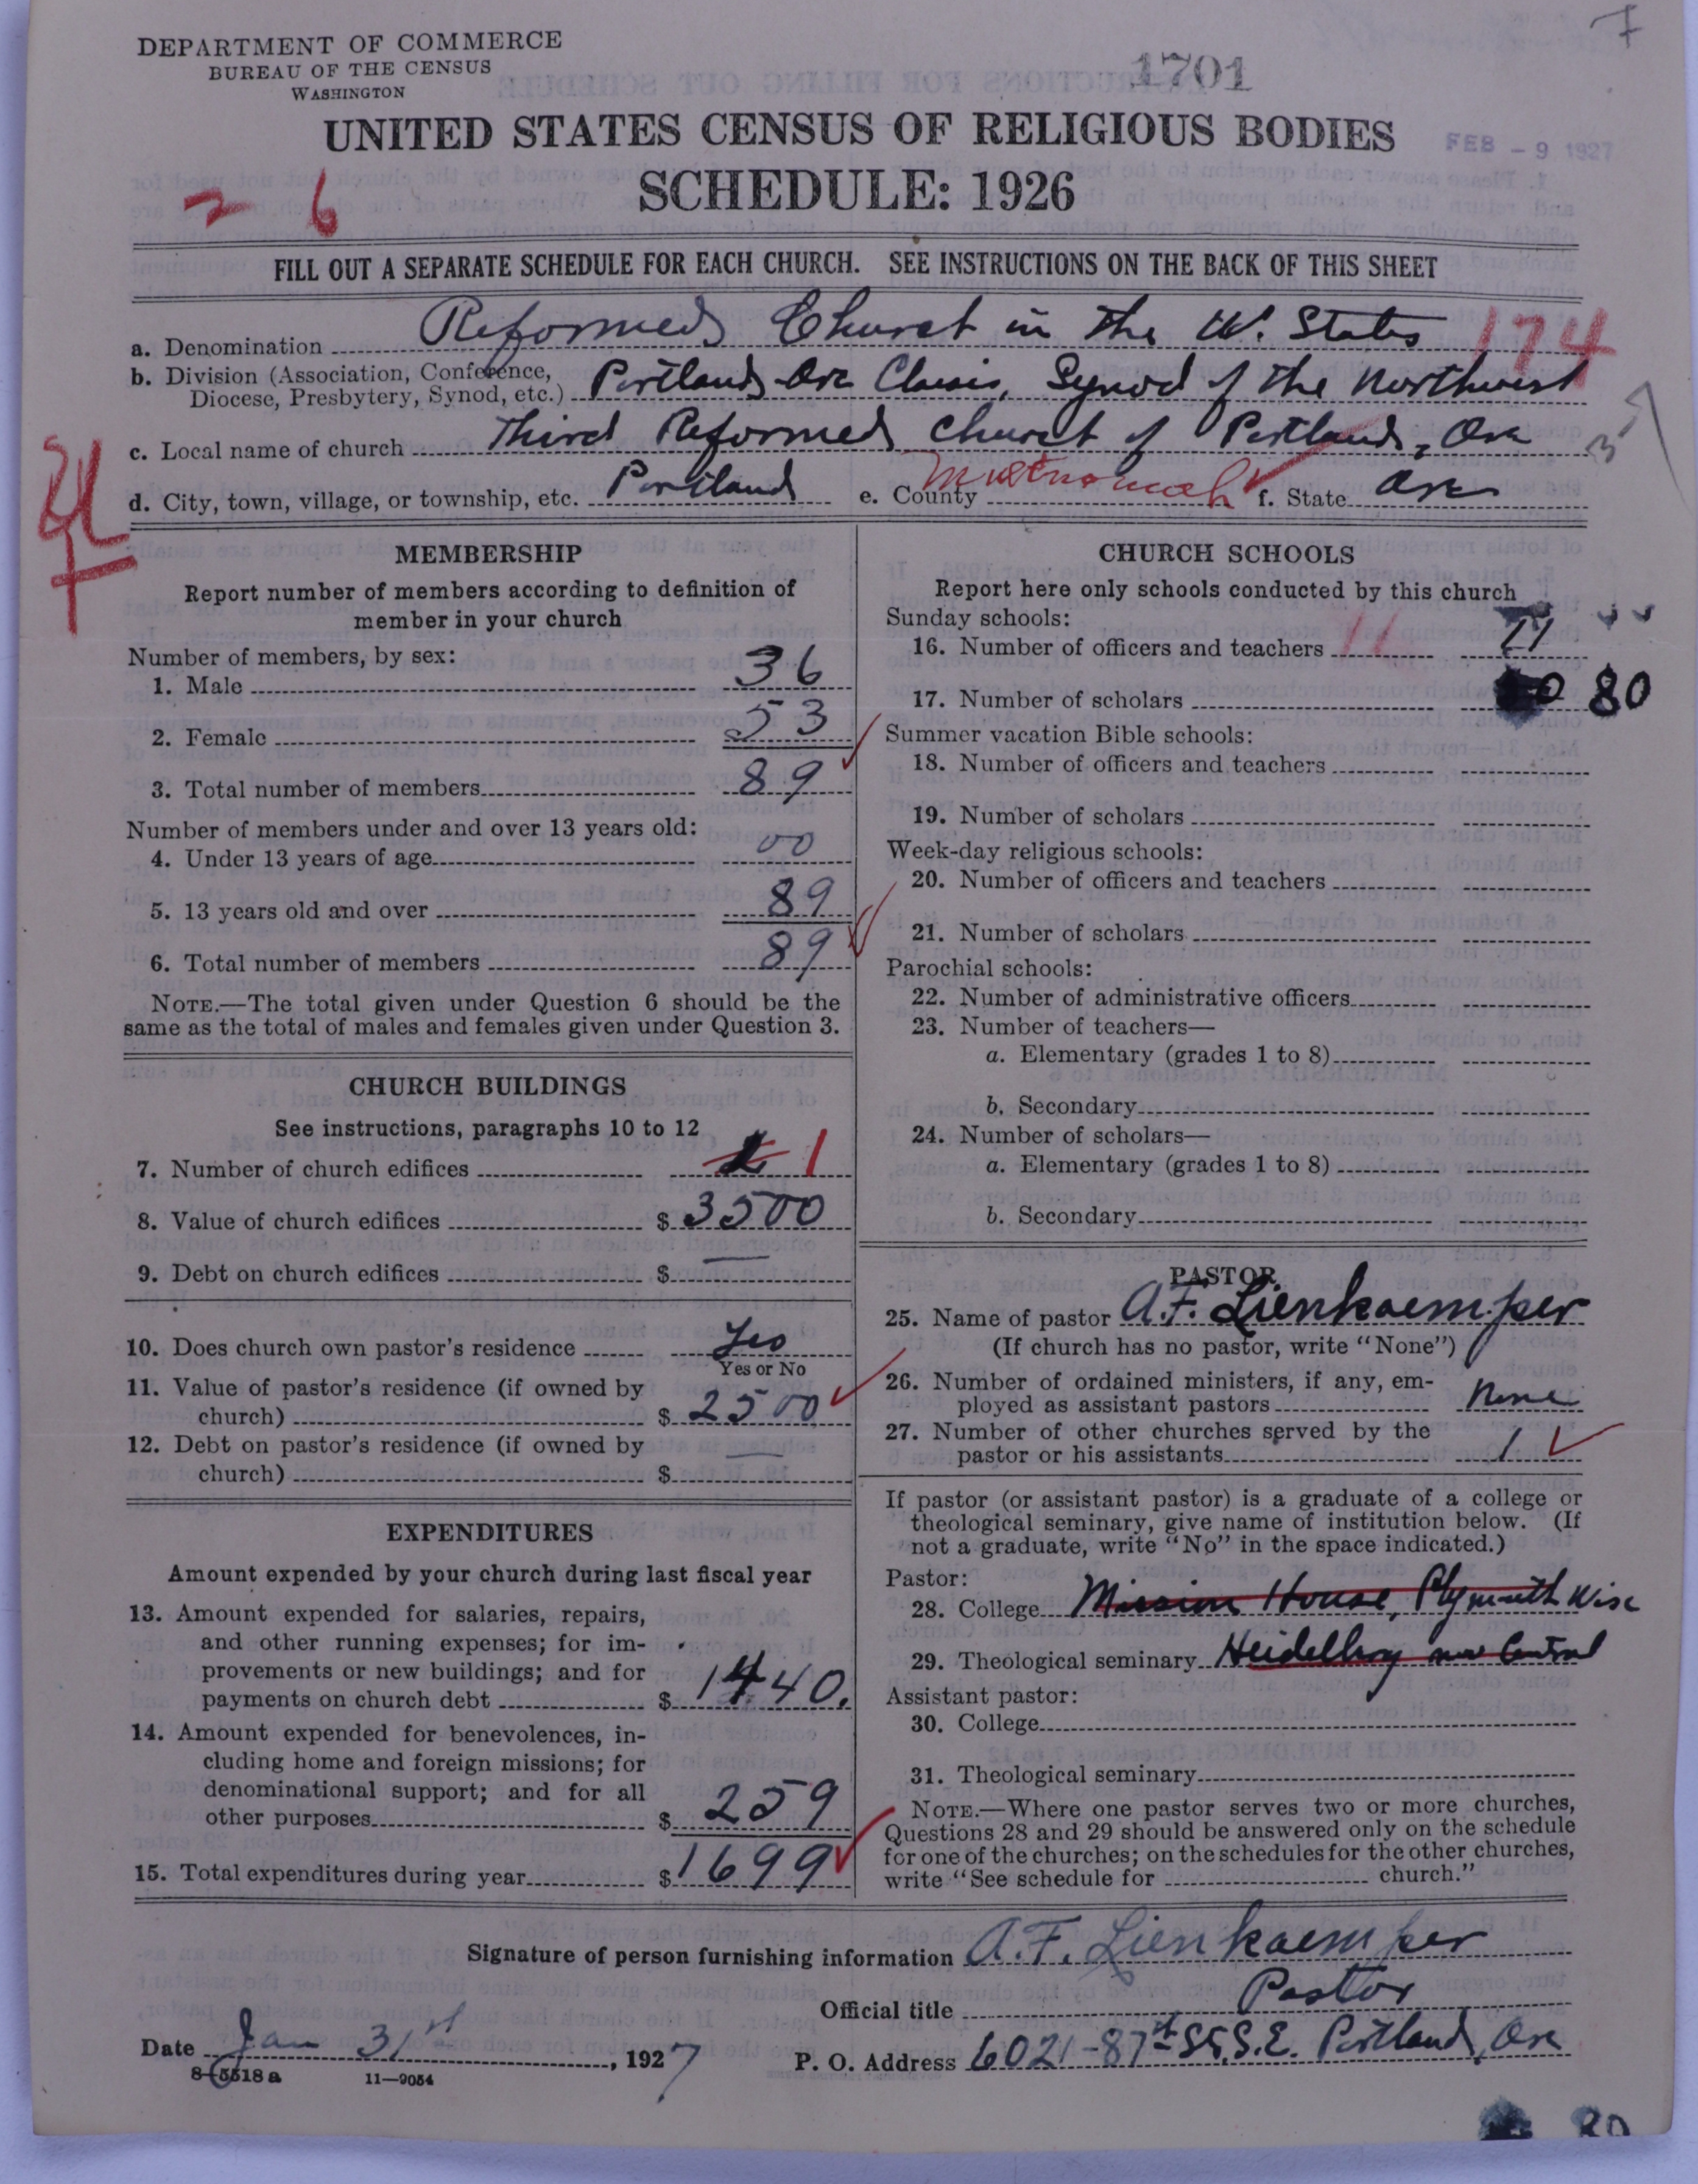 7
DEPARTMENT OF COMMERCE
BUREAU OF THE CENSUS
WASHINGTON
1701
UNITED STATES CENSUS OF RELIGIOUS BODIES
FEB - 9 1927
SCHEDULE: 1926
2 6
FILL OUT A SEPARATE SCHEDULE FOR EACH CHURCH. SEE INSTRUCTIONS ON THE BACK OF THIS SHEET
a. Denomination Reformed Church in the U. States 174
b. Division (Association, Conference, Diocese, Presbytery, Synod, etc.) Portland-Ore Classis, Synod of the Northwest
c. Local name of church Third Reformed Church of Portland, Ore
d. City, town, village, or township, etc. Portland e. County Multnomah f. State Ore
MEMBERSHIP
Report number of members according to definition of
member in your church
Number of members, by sex:
1. Male 36
2. Female 53
3. Total number of members 89
Number of members under and over 13 years old:
4. Under 13 years of age 00
5. 13 years old and over 89
6. Total number of members 89
NOTE.—The total given under Question 6 should be the
same as the total of males and females given under Question 3.
CHURCH BUILDINGS
See instructions, paragraphs 10 to 12
7. Number of church edifices 1
8. Value of church edifices $ 3500
9. Debt on church edifices $ —
10. Does church own pastor's residence Yes
Yes or No
11. Value of pastor's residence (if owned by
church) $ 2500
12. Debt on pastor's residence (if owned by
church) $ —
EXPENDITURES
Amount expended by your church during last fiscal year
13. Amount expended for salaries, repairs,
and other running expenses; for im-
provements or new buildings; and for
payments on church debt $ 1440.
14. Amount expended for benevolences, in-
cluding home and foreign missions; for
denominational support; and for all
other purposes $ 259
15. Total expenditures during year $ 1699
CHURCH SCHOOLS
Report here only schools conducted by this church
Sunday schools:
16. Number of officers and teachers 11 11
17. Number of scholars 80
Summer vacation Bible schools:
18. Number of officers and teachers
19. Number of scholars
Week-day religious schools:
20. Number of officers and teachers
21. Number of scholars
Parochial schools:
22. Number of administrative officers
23. Number of teachers—
a. Elementary (grades 1 to 8)
b. Secondary
24. Number of scholars—
a. Elementary (grades 1 to 8)
b. Secondary
PASTOR
25. Name of pastor A.F. Lienkaemper
(If church has no pastor, write "None")
26. Number of ordained ministers, if any, em-
ployed as assistant pastors None
27. Number of other churches served by the
pastor or his assistants 1
If pastor (or assistant pastor) is a graduate of a college or
theological seminary, give name of institution below. (If
not a graduate, write "No" in the space indicated.)
Pastor:
28. College Mission House, Plymouth Wisc
29. Theological seminary Heidelberg now Central
Assistant pastor:
30. College
31. Theological seminary
NOTE.—Where one pastor serves two or more churches,
Questions 28 and 29 should be answered only on the schedule
for one of the churches; on the schedules for the other churches,
write "See schedule for church."
Signature of person furnishing information A.F. Lienkaemper
Official title Pastor
Date Jan 31st, 1927
P. O. Address 6021-87th St. S.E. Portland, Ore
8-5518 a 11-9054
80